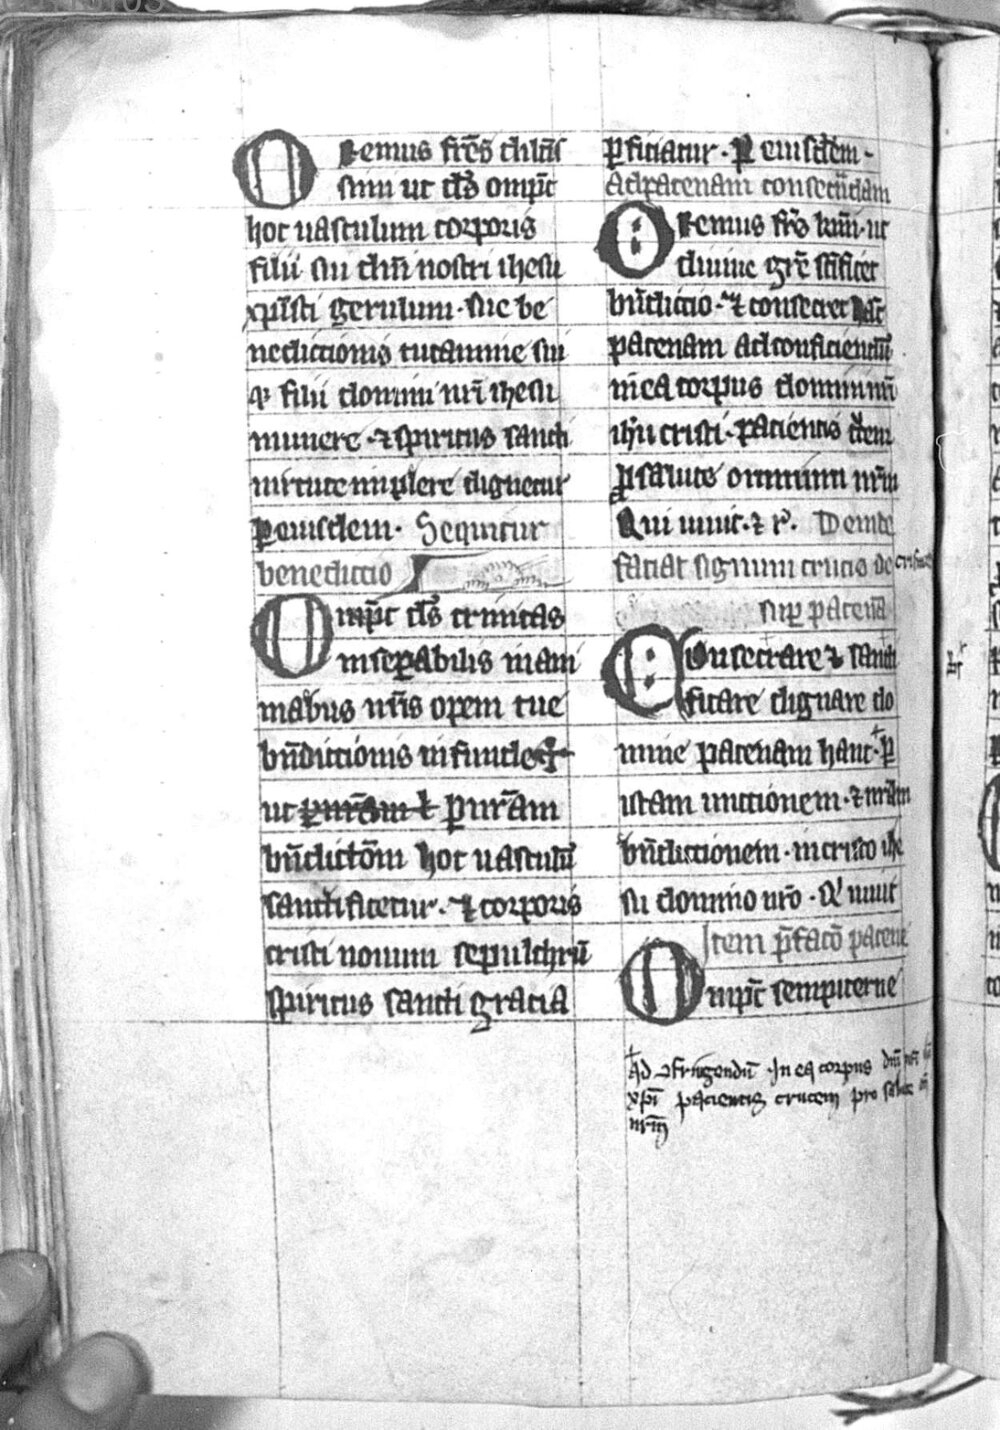 Oremus fr̄es dilcis
simi ut ds̄ omp̄t
hoc uasculum corporis
filii sui dn̄i nostri ihesu
xp̄isti gerulum· sue be
nedictionis tutamine sui
q; filii domini nr̄i ihesu
munere ·⁊ spiritus sancti
uirtute implere dignetur
ꝑ eiusdem· Sequitur
benedictio
Omp̄t ds̄ trinitas
inseꝑabilis mani
mabus nr̄is opem tue
bn̄dictionis infunde ✠
ut purīam
bn̄dictōm hoc uasculū
sanctificetur· ⁊ corporis
cristi nouum sepulchrū
spiritus sancti gracia
ꝑficiatur· ꝑ eiusdem·
Ad patenam consecrādam
Oremus fr̄s kmi· ut
diuine gr̄e sc̄ificet
bn̄dictio· ⁊ consecret hāc
patenam ad conficiendū
in ea corpus domini nr̄i
ih̄u cristi· pacientis crucem
ꝓ salute omnium nr̄m
Qui uiuit· ⁊ r̄· Deinde
faciat signum crucis de crismate
suꝑ patenā
Consecrare ⁊ sancti
ficare dignare do
mine patenam hanc· ꝑ
istam unctionem· ⁊ nr̄am
bn̄dictionem· in cristo ihe
su domino nr̄o· Q̄ uiuit
Item p̄facō patene
Omp̄t sempiterne
Ad ꝯfringendū · In ea corpus dn̄i nr̄i ih̄u
xp̄i pacientis crucem pro salute oī
nr̄m